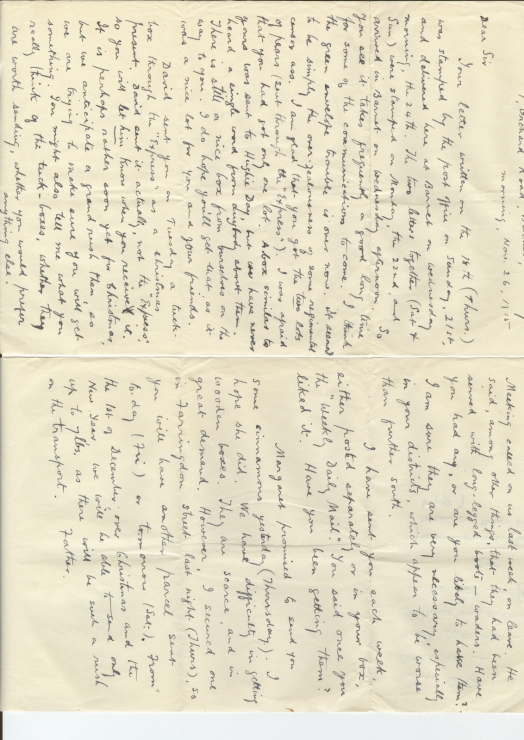 Orchard Road,
morning, Nov. 26, 1915
Dear Sir
Your letter written on the 18th (Thurs.)
was stamped by the post office on Sunday, 21st,
and delivered here at Barnet on Wednesday
morning, the 24th. The two letters together (Sat. &
Sun) were stamped on Monday, the 22nd and
arrived in Barnet on Wednesday afternoon. So
you see it takes frequently a good long time
for some of the communications to come. I think
the green envelope trouble is over now. It seemed
to be simply the over-zealousness of some regimental
censor ass. I am glad that you got the two lots
of pears (sent through the "Express"). I was afraid
that you had got only one lot. A box similar to
yours was sent to Hughie Day, but we have never
heard a single word from anybody about them.
There is still a nice box from ourselves on the
way to you. I do hope you'll get that, as it
was a nice lot for you and your friends.
David sent you on Tuesday a tuck-
box through the "Express", as a christmas
present. David sent it actually, not the "Express"
so you will let him know when you receive it.
It is perhaps rather soon yet for Christmas
but we anticipate a grand rush then, so
we are trying to make sure you will get
something. You might also tell me what you
really think of the tuck-boxes, whether they
are worth sending, whether you would prefer
anything else
Meeking called on us last week, on leave. He
said, among other things, that they had been
served with long-legged boots — waders. Have
you had any, or are you likely to have them?
I am sure they are very necessary, especially
in your districts, which appear to be worse
than further south.
I have sent you each week,
either posted separately or in your box,
the "Weekly Daily Mail." You said once you
liked it. Have you been getting them?
Margaret promised to send you
some cinnamons yesterday (Thursday). I
hope she did. We have difficulty in getting
wooden boxes. They are scarce, and in
great demand. However, I secured one
in Farringdon Street last night (Thurs.), so
you will have another parcel sent
to-day (Fri) or tomorrow (Sat.). From
the 1st of December over Christmas and the
New Year we will be able to send only
up to 7 lbs, as there will be such a rush
on the transport. Father.